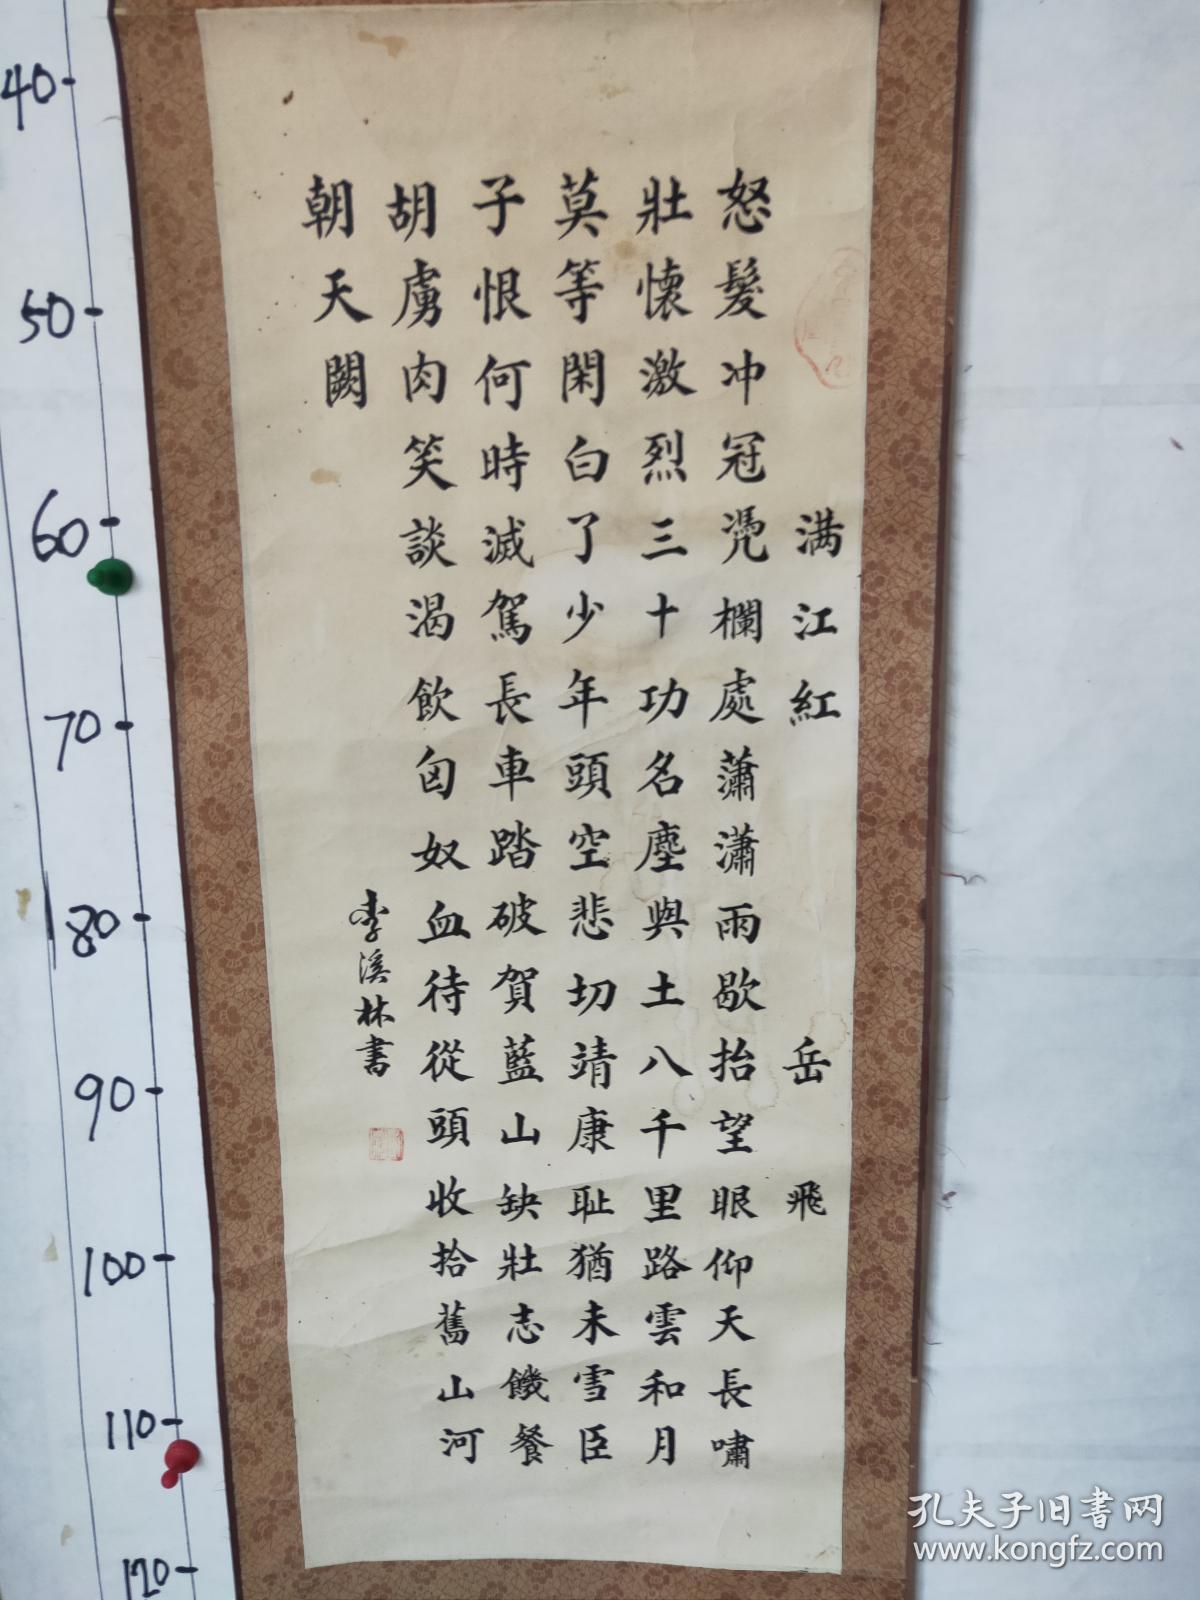 满江紅 岳飛
怒髮冲冠凴欄處蕭瀟雨歇抬望眼仰天長嘯
壯懷激烈三十功名塵與土八千里路雲和月
莫等閑白了少年頭空悲切靖康耻猶未雪臣
子恨何時滅駕長車踏破賀藍山缺壯志饑餐
胡虜肉笑談渴飲匈奴血待從頭收拾舊山河
朝天闕
李溪林書
40
50
60
70
80
90
100
110
120
孔夫子旧書网
www.kongfz.com